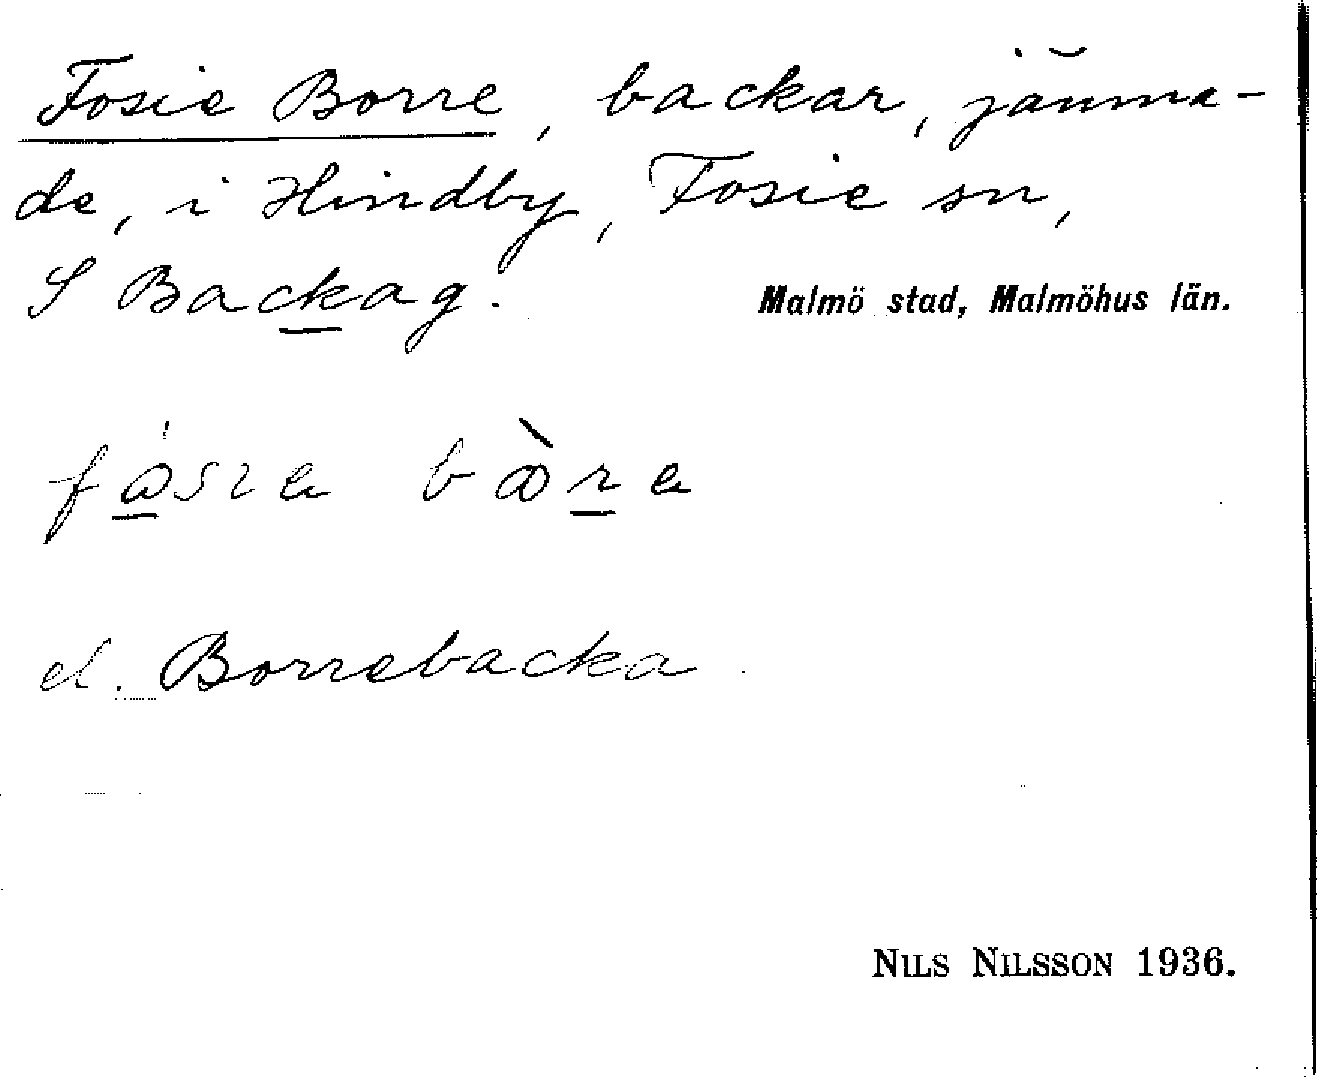 Fosie Borre, backar, jämna-
de, i Hindby, Fosie sn,
S Backag. Malmö stad, Malmöhus län.
el. Borrebacka.
NILS NILSSON 1936.